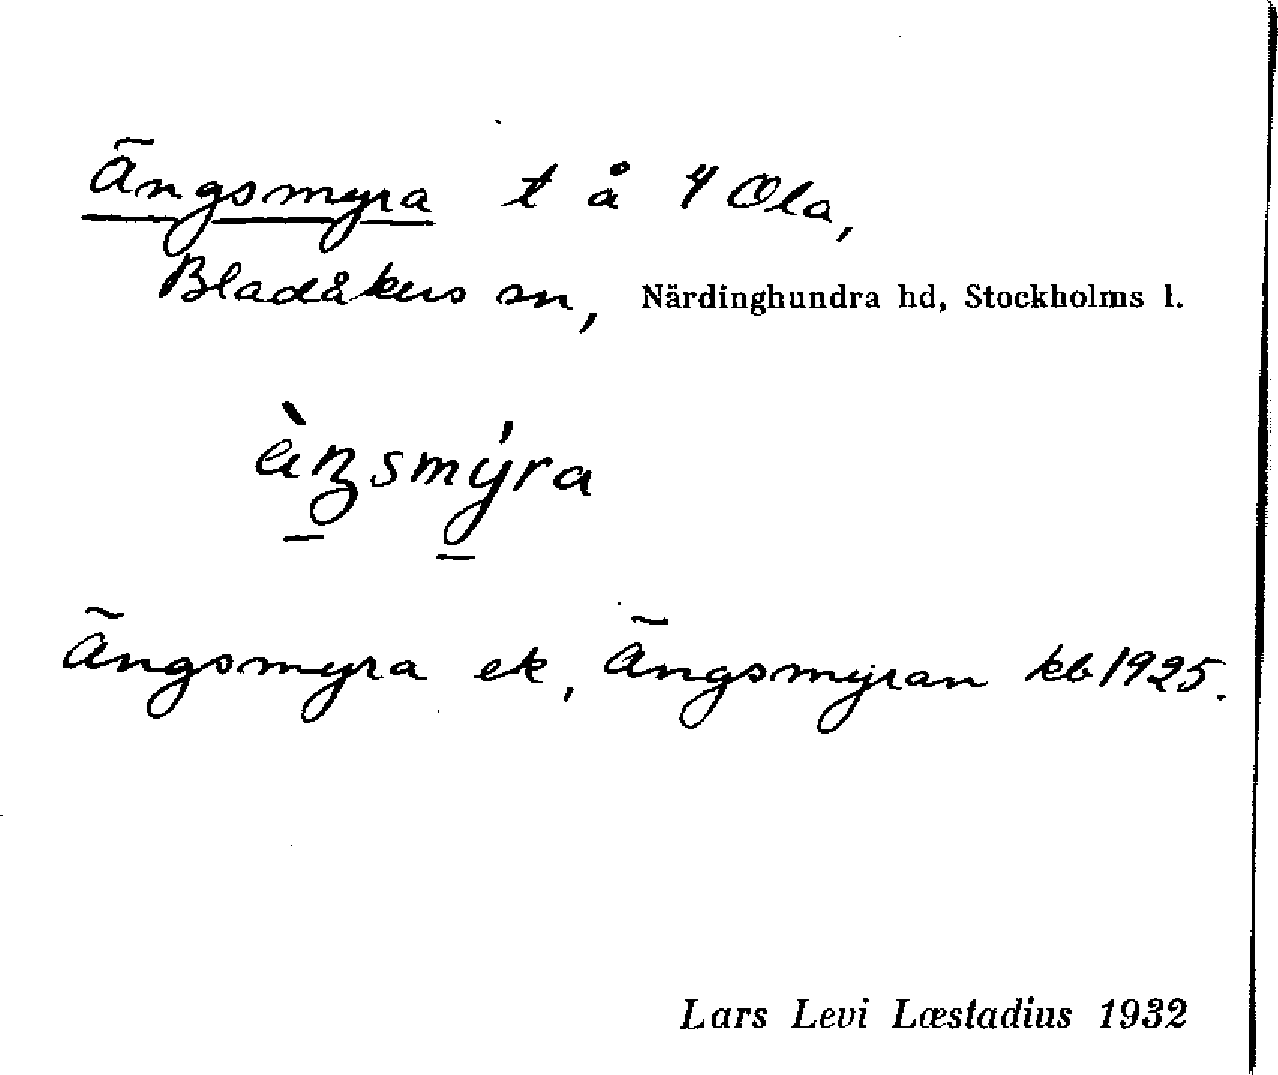 Ängsmyra t å 4 Ola,
Bladåkers sn, Närdinghundra hd, Stockholms l.
ä̀ŋsmýra
Ängsmyra ek, Ängsmyran kb 1925.
Lars Levi Læstadius 1932